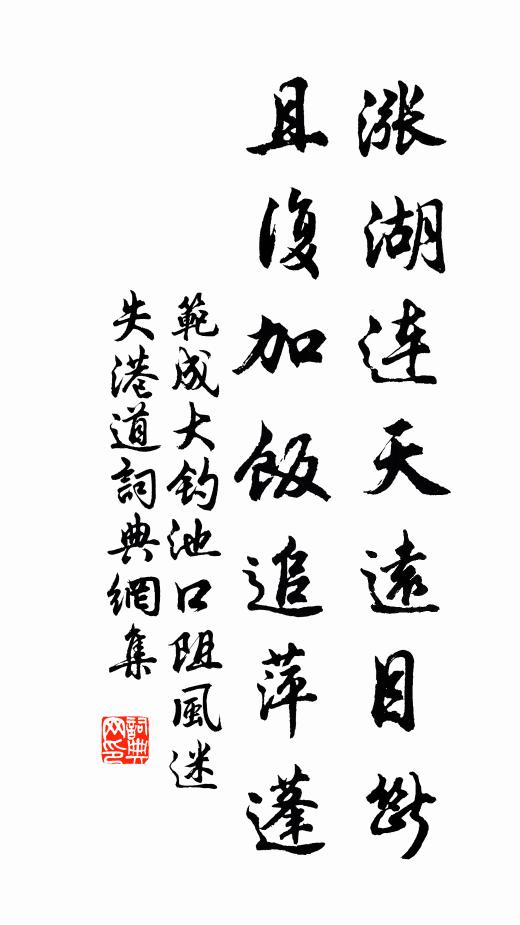 漲湖連天遠目斷
且復加飯追萍蓬
範成大釣池口阻風迷
失港道詞典網集
詞典
网印